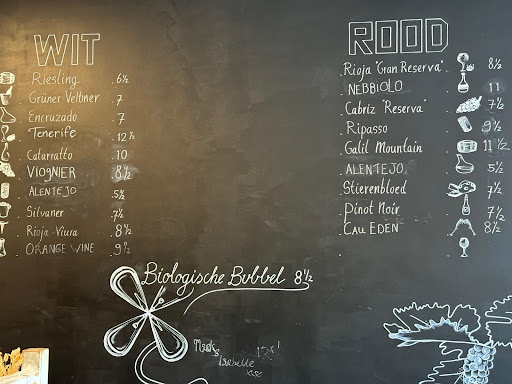 WIT
Riesling . 6½
Grüner Veltner . 7
Encruzado . 7
Tenerife . 12½
Catarratto . 10
Viognier 8½
ALENTEJO . 5½
Silvaner . 7½
Rioja-Viura . 8½
ORANGE WINE . 9½
ROOD
Rioja "Gran Reserva" . 8½
NEBBIOLO . 11
Cabriz "Reserva" . 7½
Ripasso . 9½
Galil Mountain . 11½
ALENTEJO . 5½
Stierenbloed . 7½
Pinot Noir . 7½
CAU EDEN 8½
Biologische Bubbel 8½
Isabelle